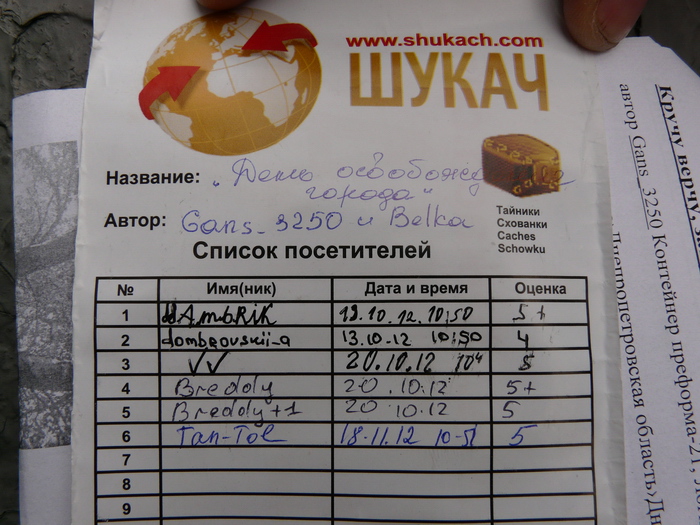 www.shukach.com
ШУКАЧ
Название: "День освобождение
города"
Автор: Gans_3250 и Belka
Тайники
Схованки
Caches
Schowku
Список посетителей
№ Имя(ник) Дата и время Оценка
1 13.10.12 10:50 5+
2 dombrovskii_a 13.10.12 10:50 4
3 VV 20.10.12 5
4 Breddy 20.10.12 5+
5 Breddy+1 20 10.12 5
6 Tan-Tol 18.11.12 5
7
8
9
Кручу верчу
автор Gans_3250 Контейнер преформа-21,
Днепропетровская область>Дн